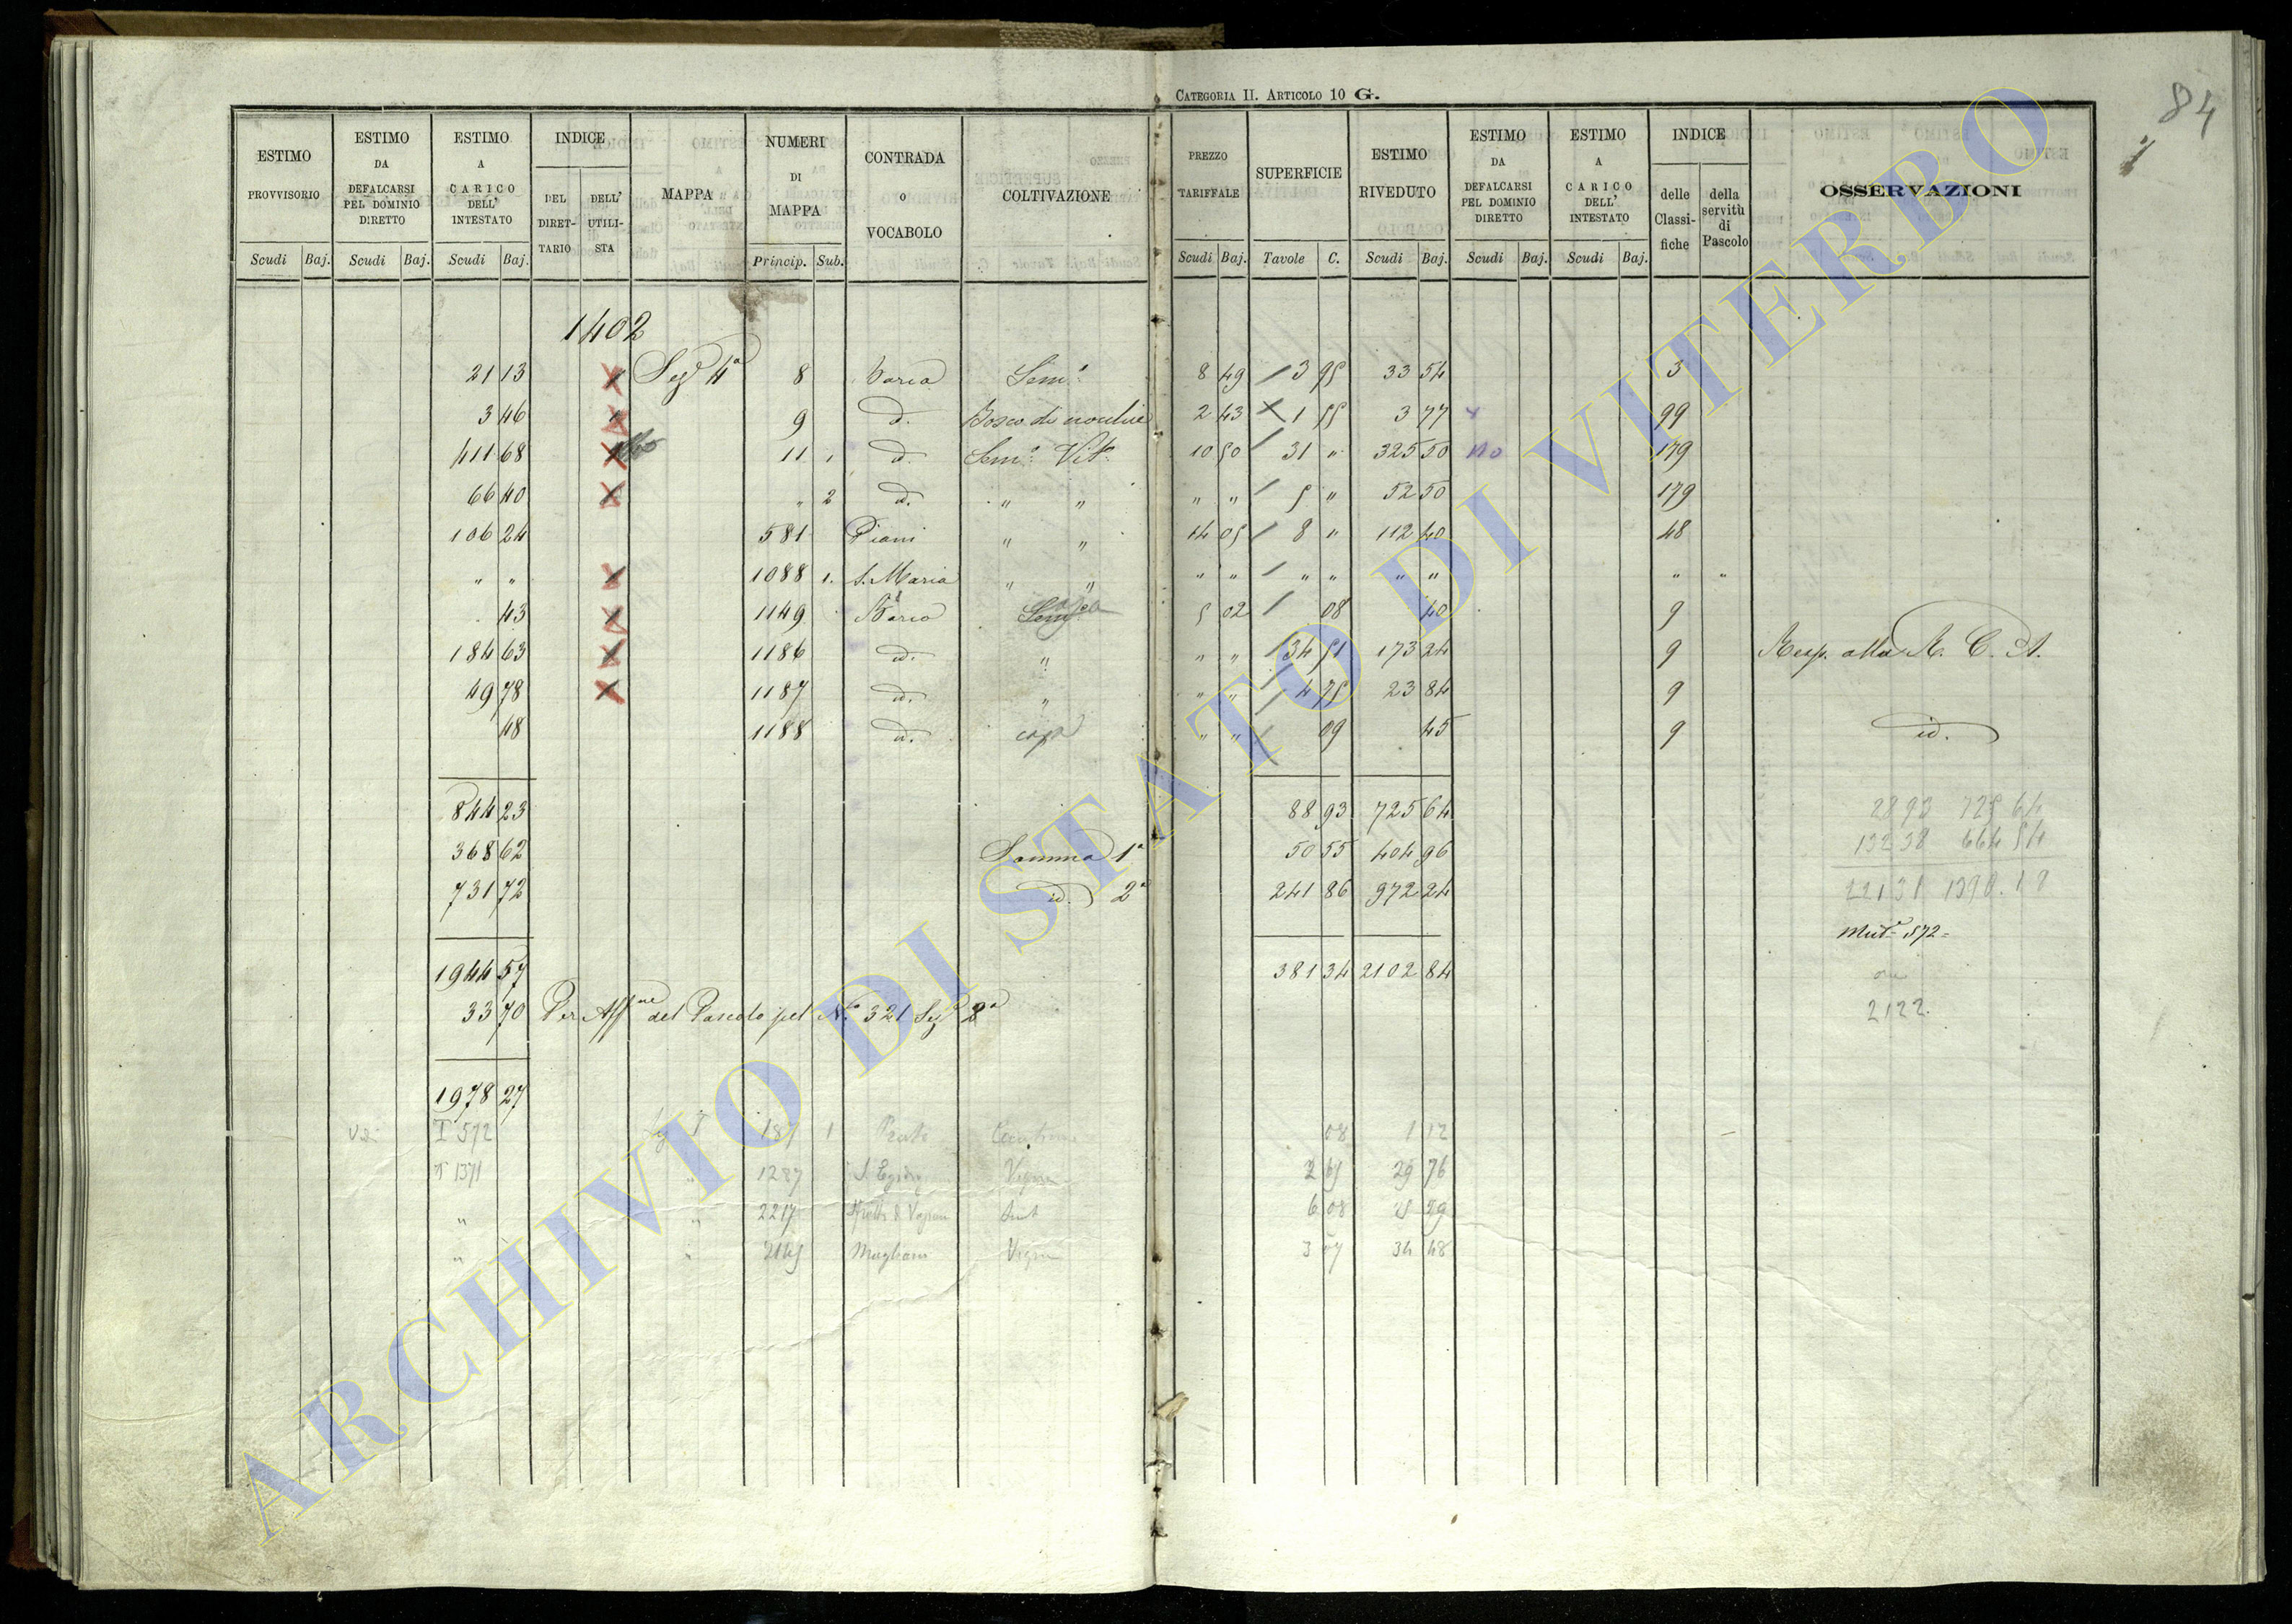 CATEGORIA II. ARTICOLO 10 G.
84
1
ESTIMO PROVVISORIO Scudi Baj.
ESTIMO DA DEFALCARSI PEL DOMINIO DIRETTO Scudi Baj.
ESTIMO A CARICO DELL' INTESTATO Scudi Baj.
INDICE DEL DIRETTARIO DELL' UTILISTA
MAPPA
NUMERI DI MAPPA Princip. Sub.
CONTRADA o VOCABOLO
COLTIVAZIONE
PREZZO TARIFFALE Scudi Baj.
SUPERFICIE Tavole C.
ESTIMO RIVEDUTO Scudi Baj.
ESTIMO DA DEFALCARSI PEL DOMINIO DIRETTO Scudi Baj.
ESTIMO A CARICO DELL' INTESTATO Scudi Baj.
INDICE delle Classifiche della servitù di Pascolo
OSSERVAZIONI
1402
21 13 Sez.e 4a 8 Varia Sem.o 8 49 3 95 33 54 3
3 46 9 d. Bosco di 2 43 1 55 3 77 99
411 68 11 1 d. Sem.o Vit.o 10 50 31 " 325 50 179
66 40 " 2 d. " " " " 5 " 52 50 179
106 24 581 Piani " " 14 05 8 " 112 40 48
" " 1088 1. S. Maria " " " " " " " " " "
43 1149 Sem.o 5 02 08 40 9
184 63 1186 d. " " " 34 51 173 24 9 Resp. alla R. C. A.
49 78 1187 d. " " " 4 75 23 84 9
48 1188 d. casa " " 09 45 9 id.
844 23 88 93 725 64
368 62 Somma 1a 50 55 404 96
731 72 id. 2a 241 86 972 24
1944 57 381 34 2102 84
33 70 Per Aff.ne del Pascolo pel N.o 321 Sez.e 2a
1978 27
88 93 725 64
132 38 664 54
221 31 1390.18
Mut.e 572=
2122.
I 572 1 Prato 08 1 12
1371 " 1287 S. Egidio Vigna 2 65 29 76
" " 2217 6 08
" " 2145 Magliano Vigna 3 07 34 48
ARCHIVIO DI STATO DI VITERBO